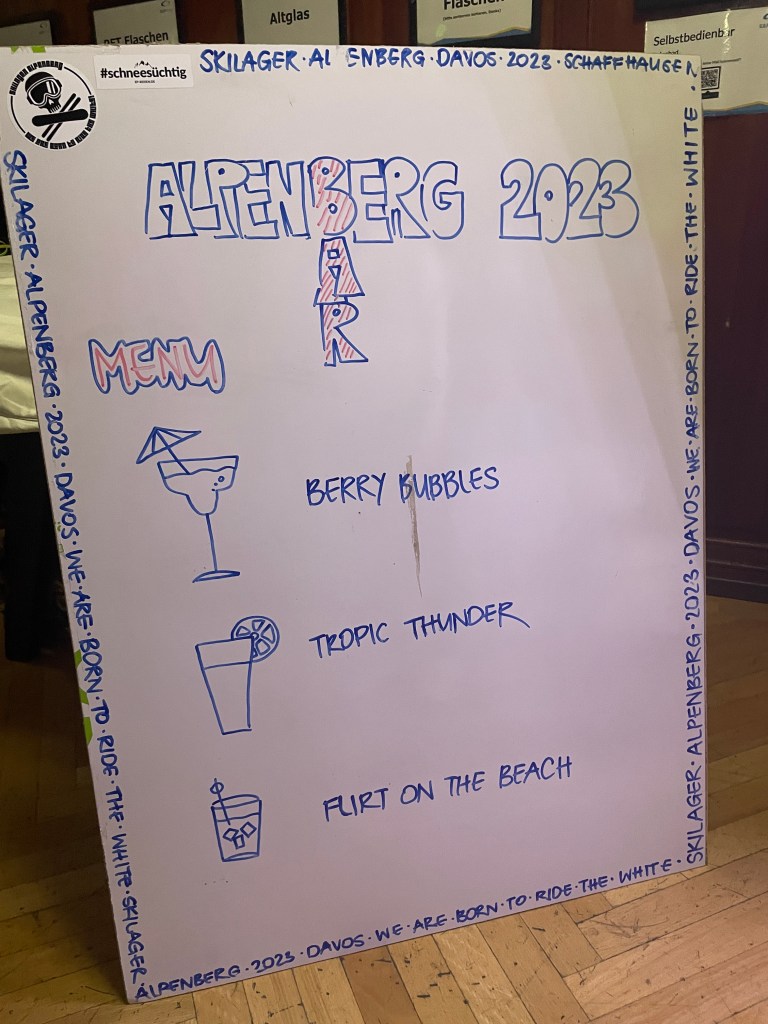 PET Flaschen
Altglas
Flaschen
Selbstbedienbar
#schneesüchtig
SKILAGER · AL ENBERG · DAVOS · 2023 · SCHAFFHAUSEN
ALPENBERG 2023
BAR
MENU
BERRY BUBBLES
TROPIC THUNDER
FLIRT ON THE BEACH
SKILAGER · ALPENBERG · 2023 · DAVOS · WE · ARE · BORN · TO · RIDE · THE · WHITE · SKILAGER
ALPENBERG · 2023 · DAVOS · WE · ARE · BORN · TO · RIDE · THE · WHITE ·
SKILAGER · ALPENBERG · 2023 · DAVOS · WE · ARE · BORN · TO · RIDE · THE · WHITE ·